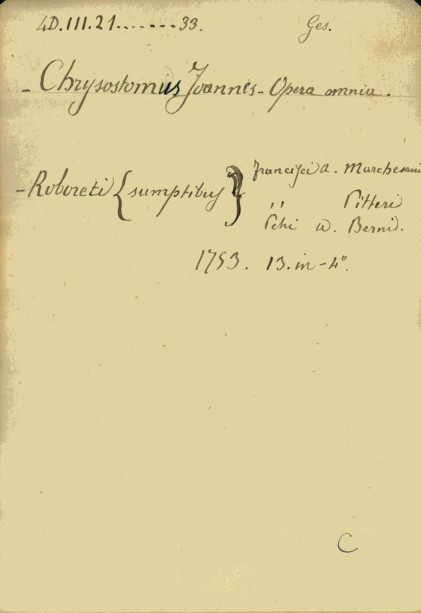 4D.III.21.......33. Ges.
- Chrysostomus Joannes - Opera omnia.
- Roboreti { sumptibus } Francisci a. Marchesani
,, Pitteri
Petri a. Berni.
1753. 13. in-4°.
C